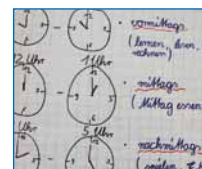 vormittags
(lernen, lesen,
rechnen)
2 Uhr 1 Uhr
mittags
(Mittag essen
Uhr 5 Uhr
nachmittags
(spielen,